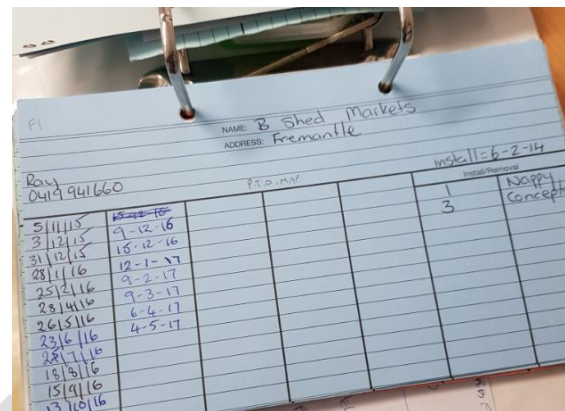 F1
NAME: B Shed Markets
ADDRESS: Fremantle
Ray
0419 941660
P.T.O. MAP
install = 6-2-14
Install/Removal
1 Nappy
3 Concept
5/11/15
3/12/15
31/12/15
28/1/16
25/2/16
28/4/16
26/5/16
23/6/16
18/8/16
15/9/16
13/10/16
9-12-16
15-12-16
12-1-17
9-2-17
9-3-17
6-4-17
4-5-17